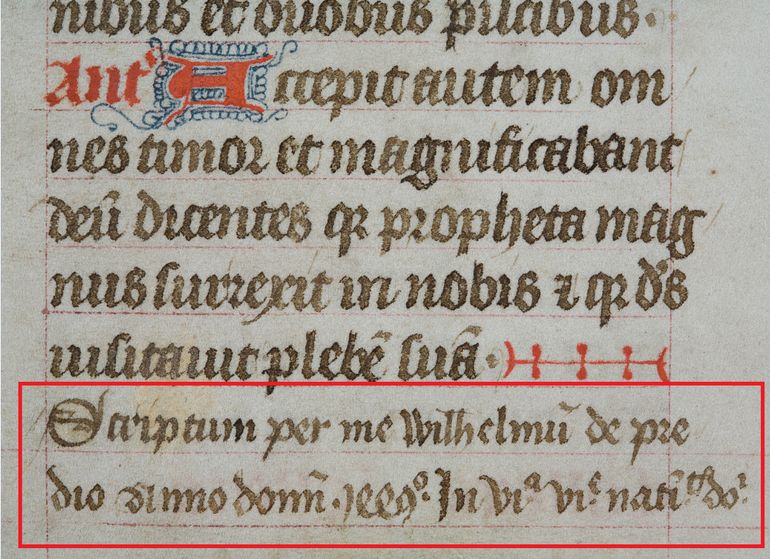 nibus et duobus piscibus.
Ant͛ Accepit autem om
nes timor et magnificabant
deū dicentes qꝛ propheta mag
nus surrexit in nobis ⁊ qꝛ ds̄
uisitauit plebē suā.
Scriptum per me Wilhelmū de pre
dio Anno domī In viᵃ viᵉ